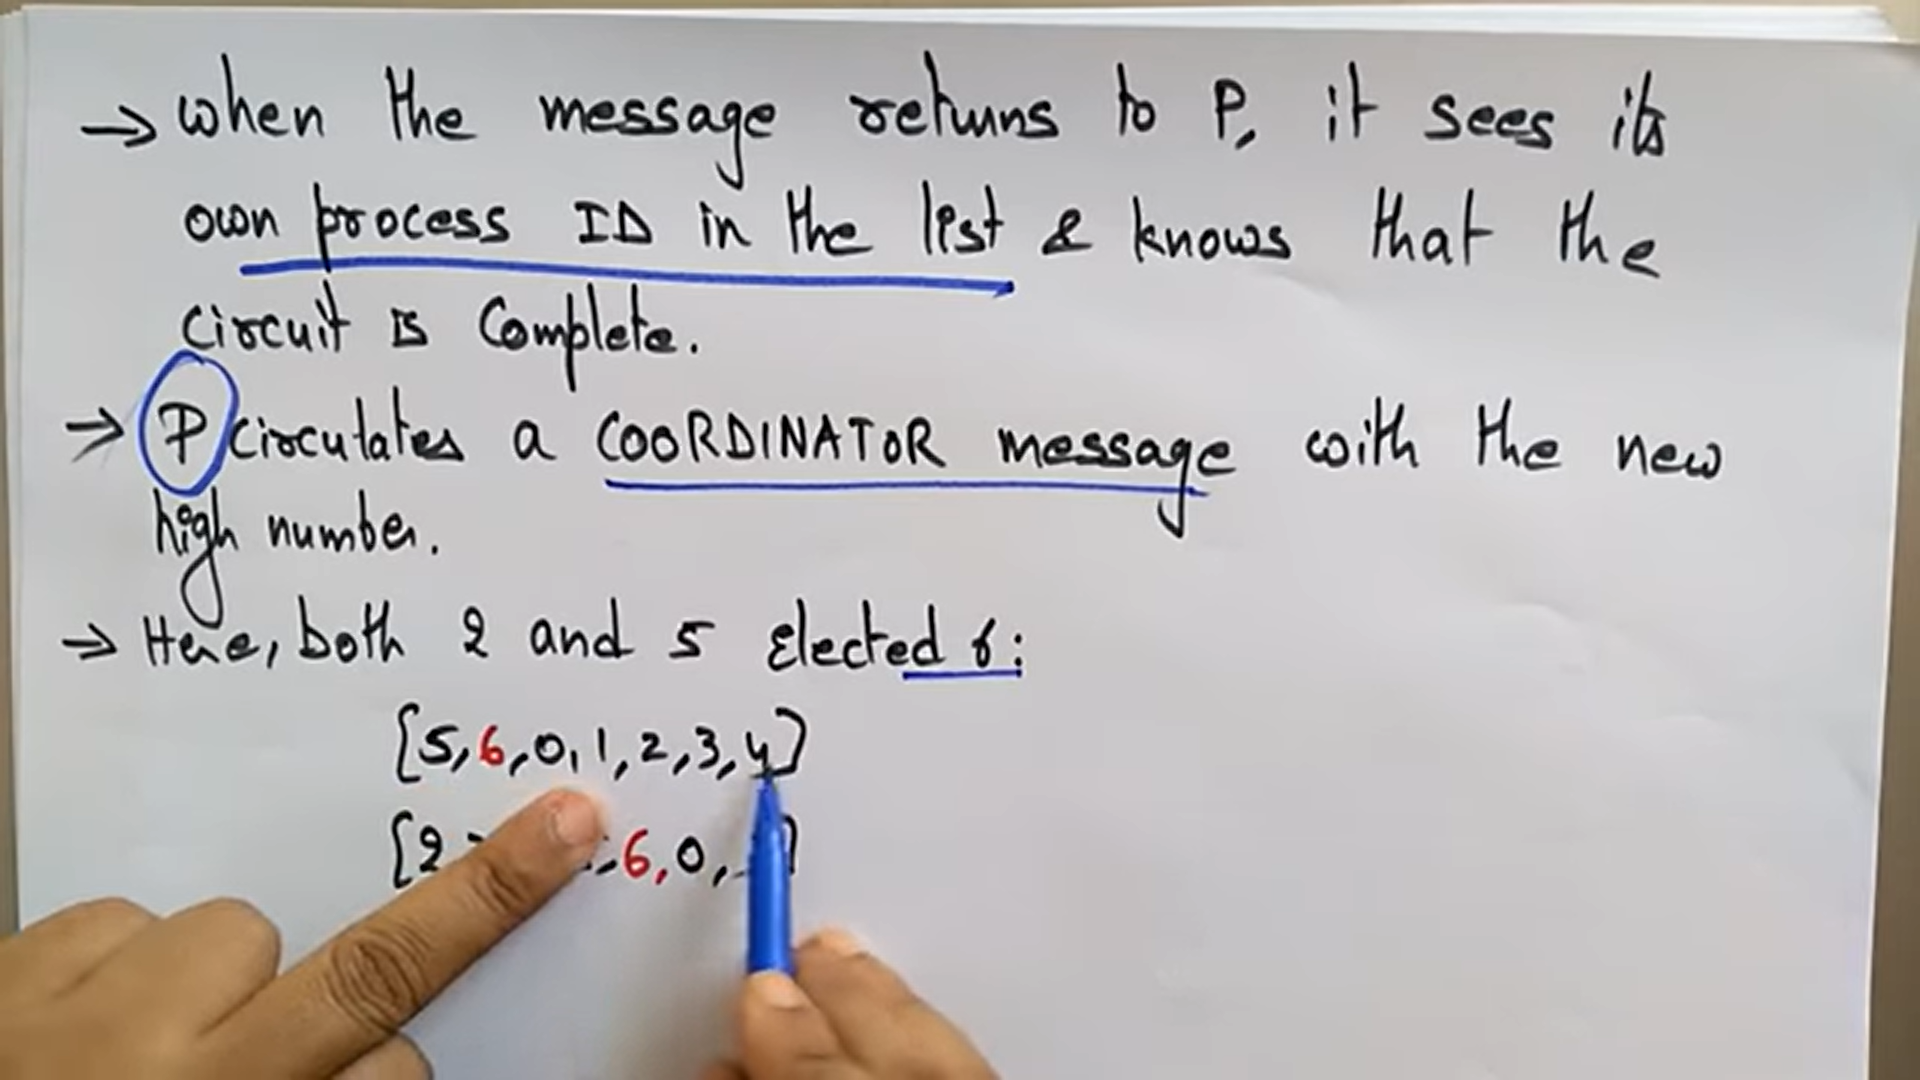 → When the message returns to P, it sees its
own process ID in the list & knows that the
circuit is Complete.
→ P circulates a COORDINATOR message with the new
high number.
→ Here, both 2 and 5 Elected 6:
[5,6,0,1,2,3,4]
[2 6,0,